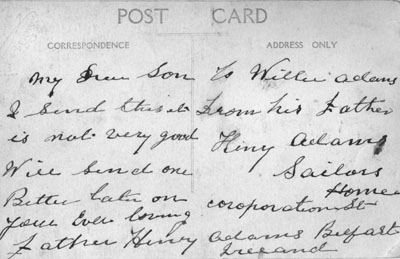 POST CARD
CORRESPONDENCE
ADDRESS ONLY
My Dear Son
I Send this it
is not very good
Will Send one
Better Later on
your Ever loving
Father Henry
To Willie Adams
From his Father
Heny Adams
Sailors
Home
coroporation St
Adams Belfast
Ireeand